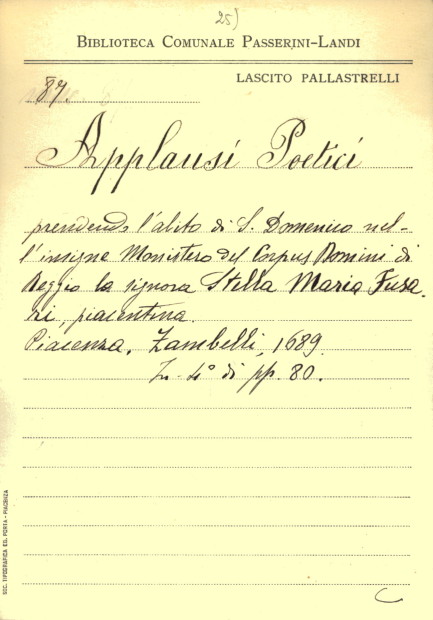 25)
BIBLIOTECA COMUNALE PASSERINI-LANDI
LASCITO PALLASTRELLI
87.
Applausi Poetici
prendendo l'abito di S. Domenico nel-
l'insigne Monistero del Corpus Domini di
Reggio la signora Stella Maria Fusa-
ri, piacentina.
Piacenza, Zambelli, 1689.
In 4° di pp. 80.
C
SOC. TIPOGRAFICA ED. PORTA - PIACENZA